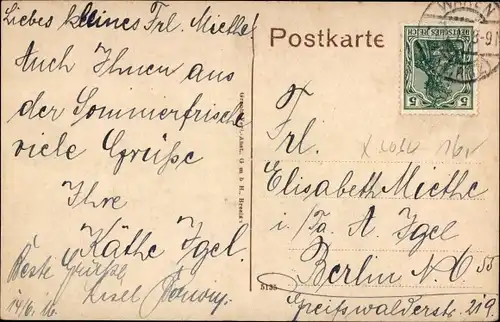 Liebes kleines Frl. Miethe!
Auch Ihnen aus
der Sommerfrische
viele Grüße
Ihre
Käthe Igel.
Beste Grüße
Liesel
14/6. 16.
Postkarte
WAREN
8-9N
DEUTSCHES REICH
5 5
5135
Frl.
Elisabeth Miethe
i/Fa. A. Igel
Berlin N.O. 55
Greifswalderstr. 219.